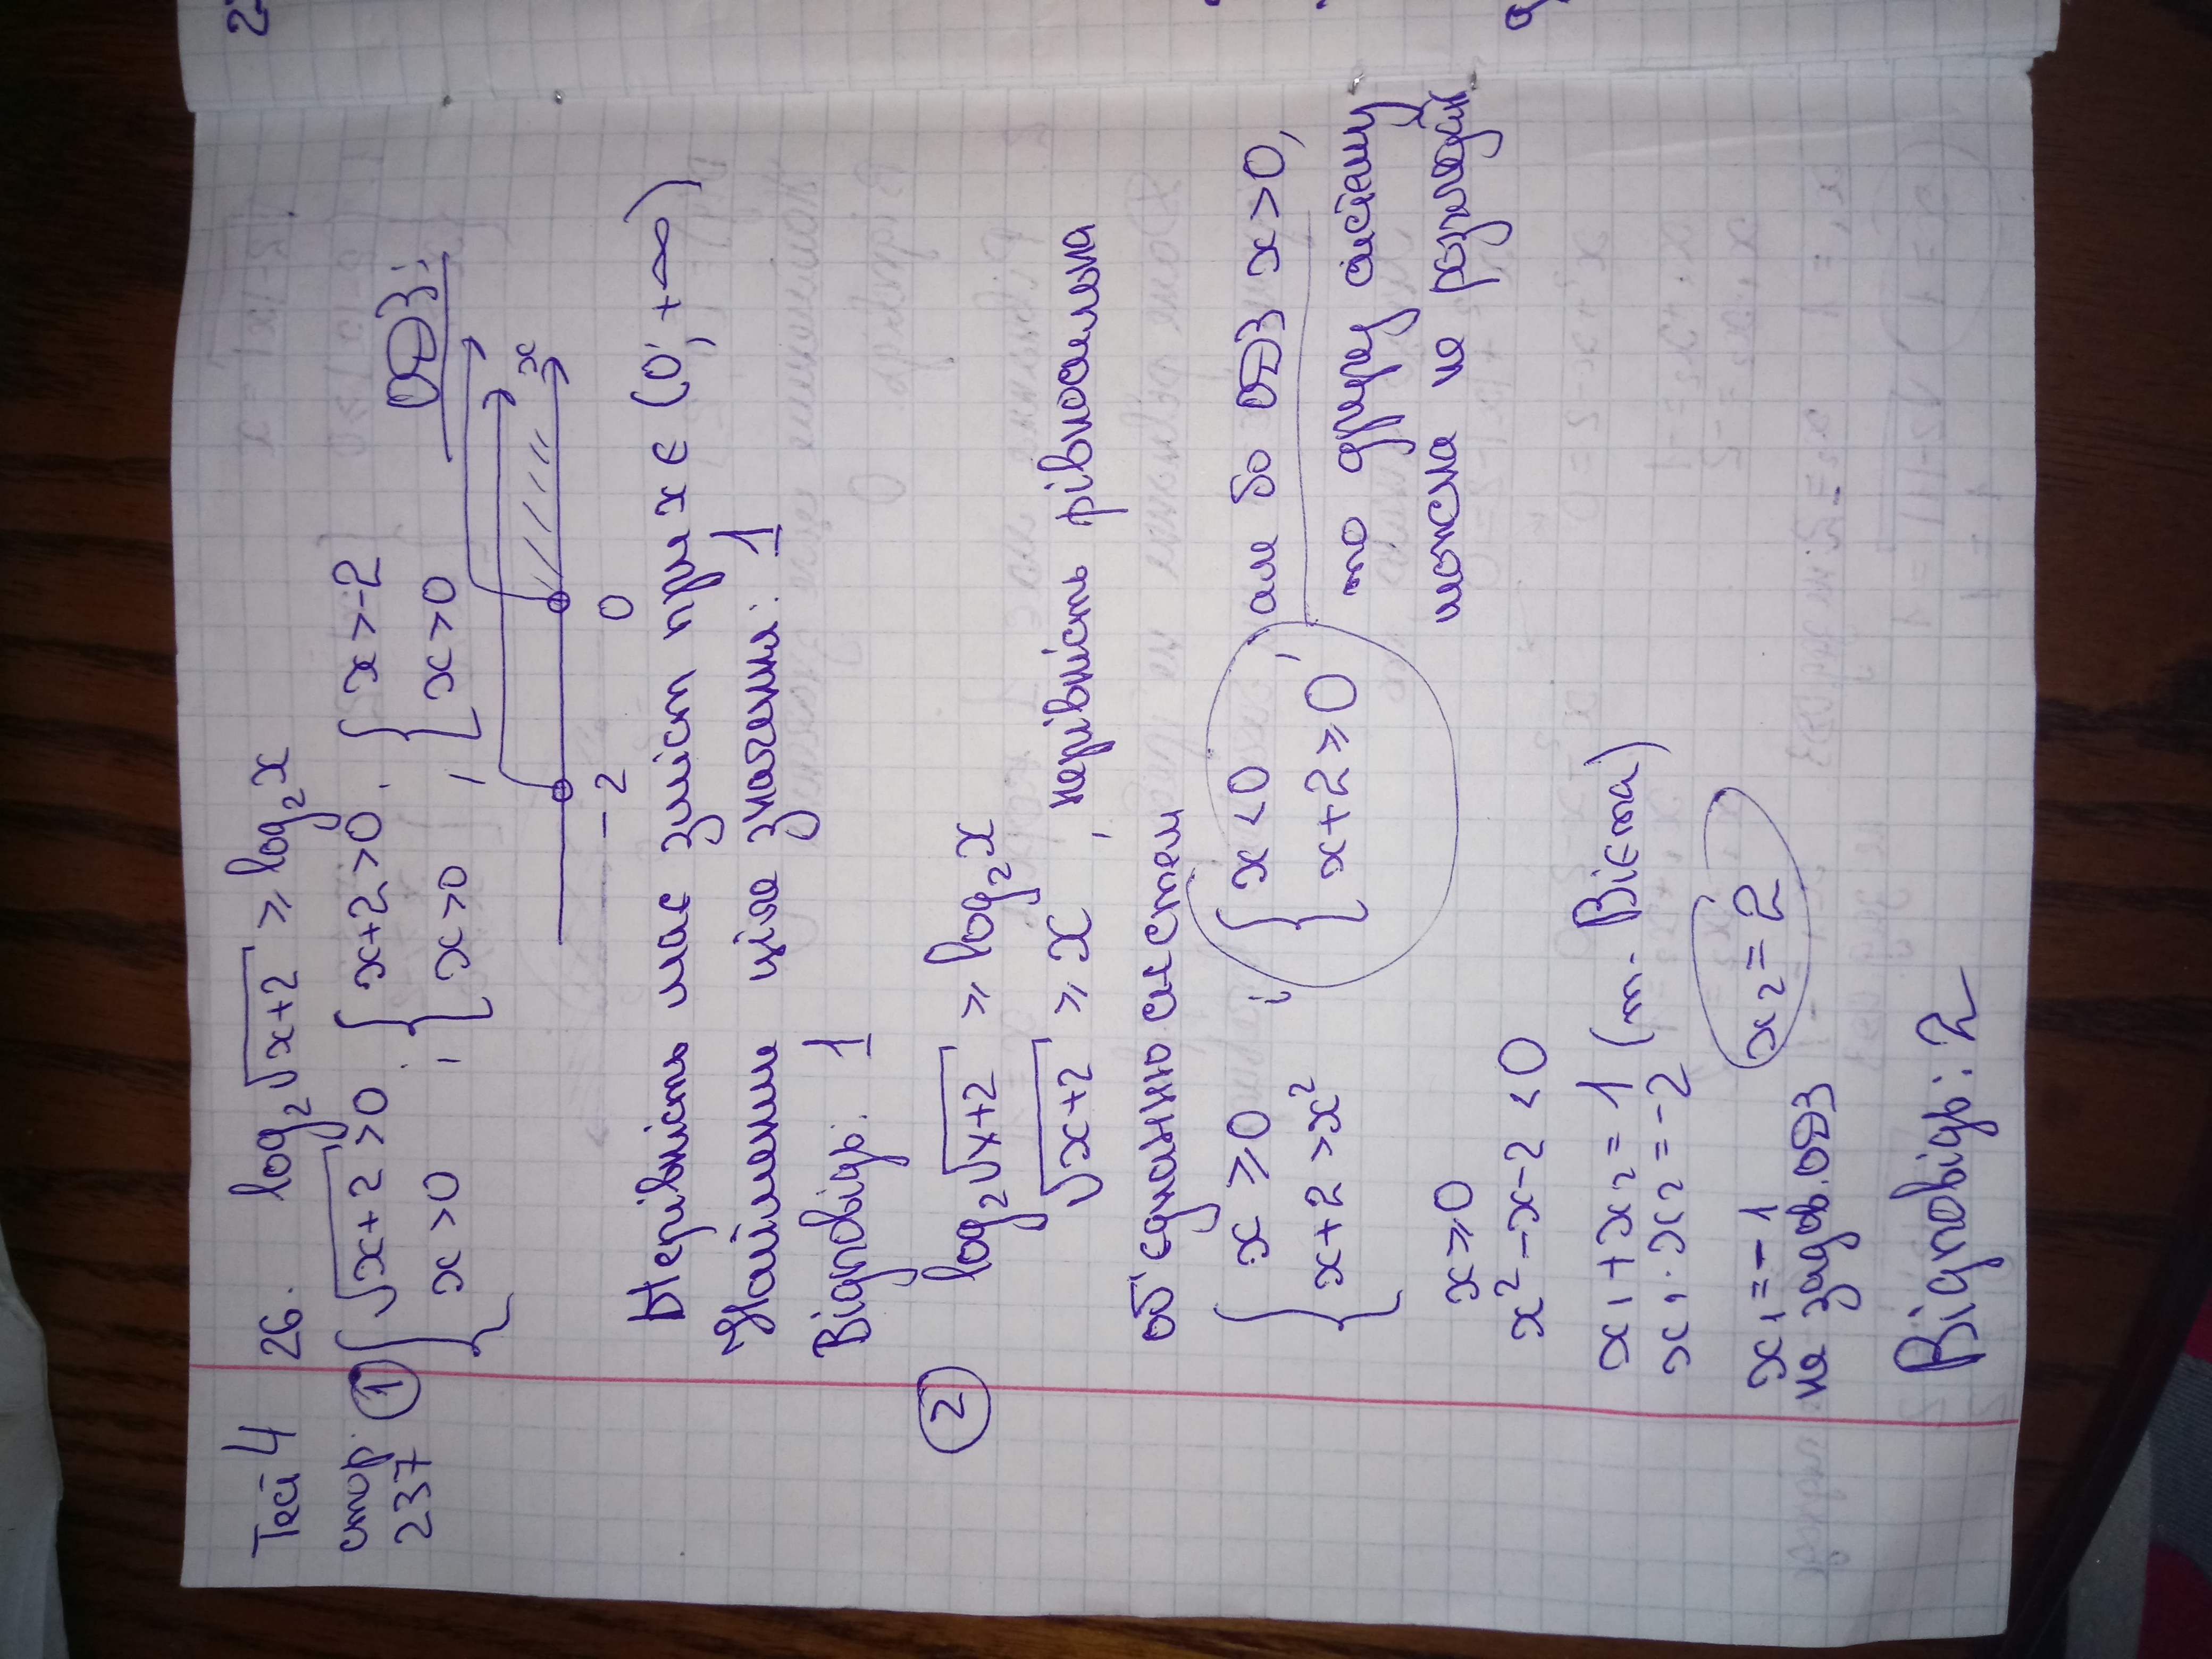 Тест 4 26. log₂√x+2 ⩾ log₂x
стор. 237 ① { √x+2 >0 ; x >0 { x+2 >0 ; x >0 { x >-2 x >0 ОДЗ:
-2 0 x
Нерівність має зміст при x ∈ (0; +∞)
Найменше ціле значення: 1
Відповідь. 1
② log₂√x+2 ⩾ log₂x
√x+2 ⩾ x , нерівність рівносильна
об'єднанню систем
{ x ⩾0 x+2 >x² ; { x <0 x+2 ⩾0 , але бо ОДЗ x >0,
то другу систему
можна не розглядати
x ⩾0
x²-x-2 <0
x₁+x₂=1 (т. Вієта)
x₁·x₂=-2
x₁=-1 x₂=2
не задов. ОДЗ
Відповідь: 2